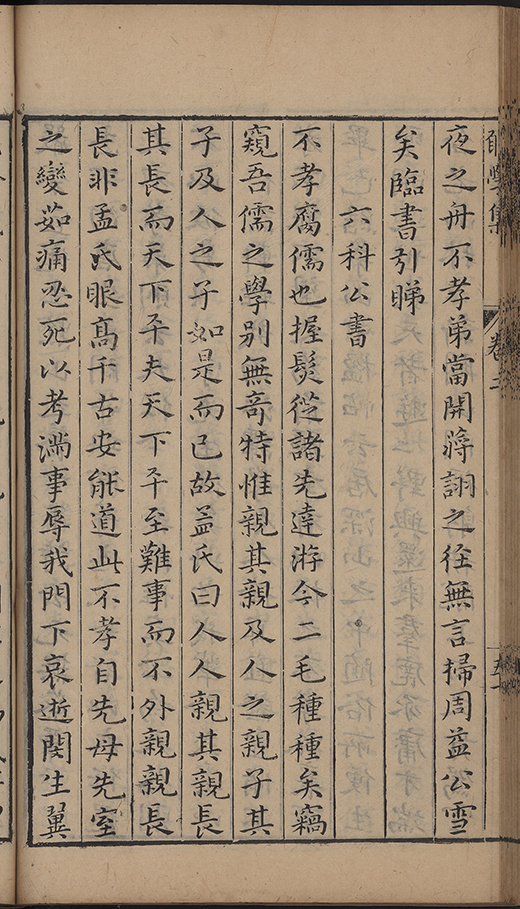 卷三
夜之舟不孝弟當開蔣詡之徑無言掃周益公雪
矣臨書引睇
六科公書
不孝腐儒也握髮從諸先達游今二毛種種矣竊
窺吾儒之學別無奇特惟親其親及人之親子其
子及人之子如是而已故孟氏曰人人親其親長
其長而天下平夫天下平至難事而不外親親長
長非孟氏眼高千古安能道此不孝自先母先室
之變茹痛忍死以考滿事辱我門下哀逝閔生翼